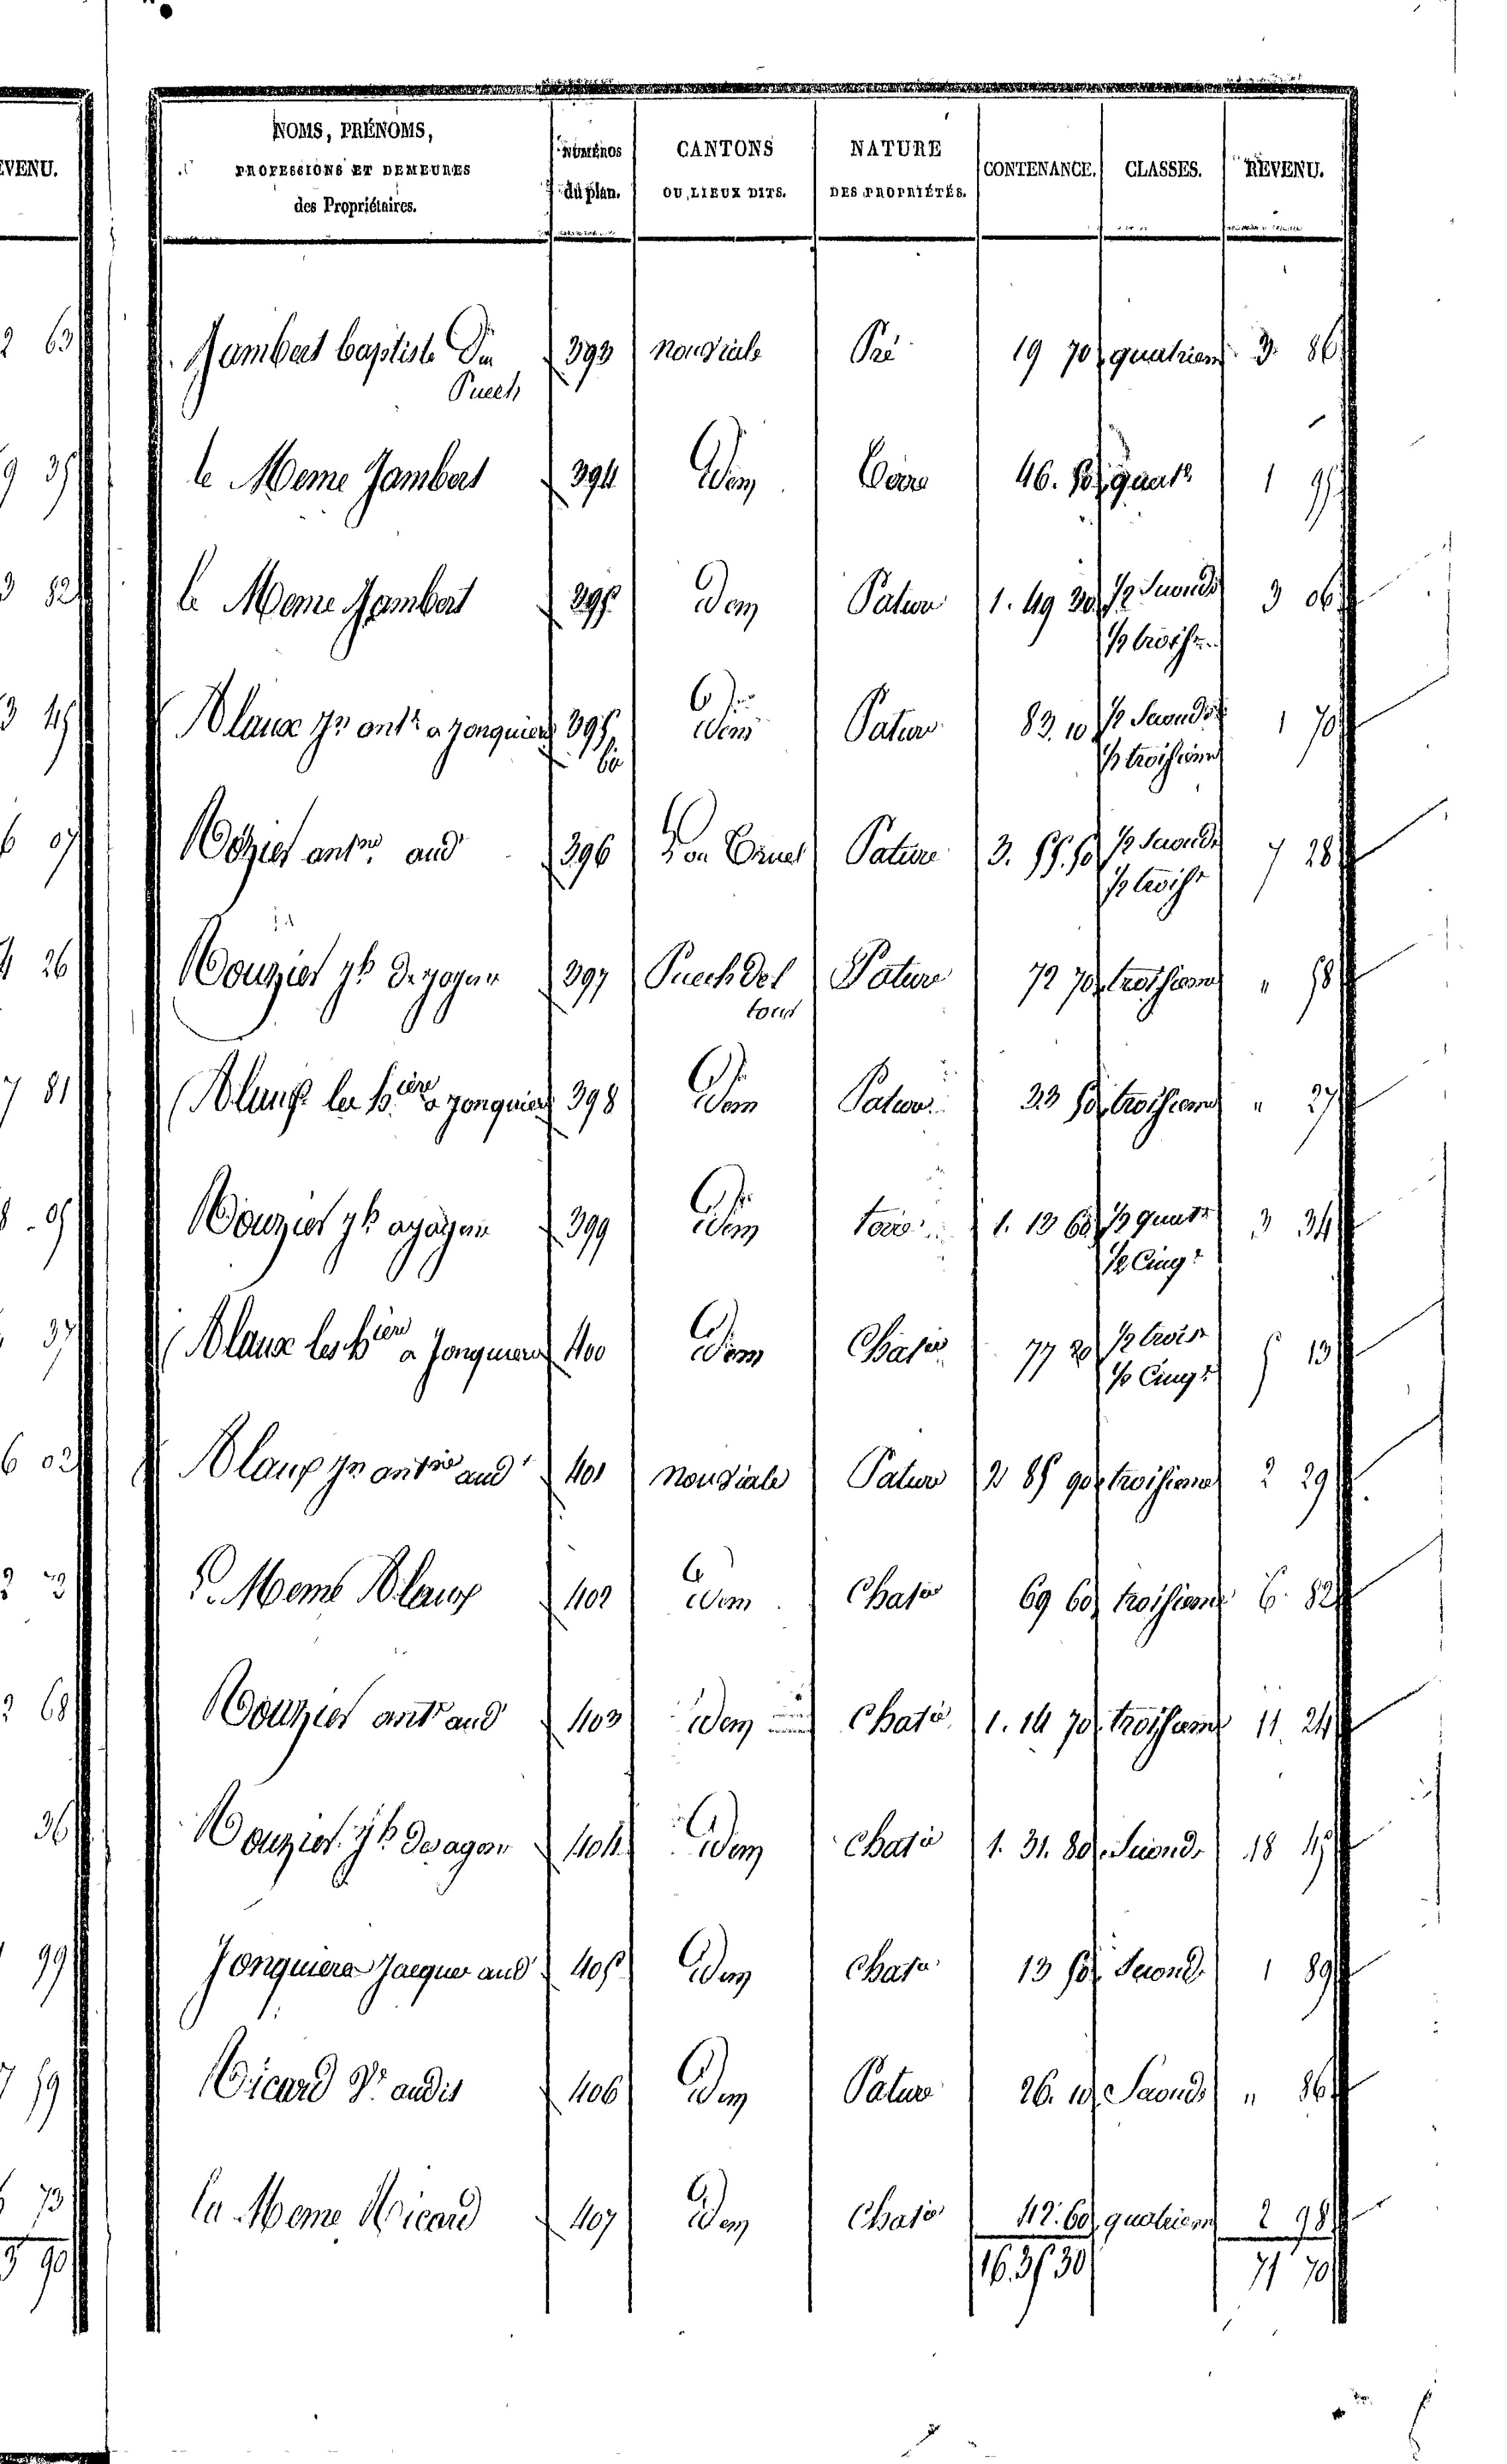 EVENU.
2 63
9 35
3 82
3 45
6 07
4 26
7 81
8 05
37
6 02
2 68
36
99
59
73
90
NOMS, PRÉNOMS, PROFESSIONS ET DEMEURES des Propriétaires. NUMÉROS du plan. CANTONS OU LIEUX DITS. NATURE DES PROPRIÉTÉS. CONTENANCE. CLASSES. REVENU.
Jambert baptiste Du 393 Nouviale Pré 19 70 quatrieme 3 86
Puech
le Meme Jambert 394 Idem Terre 46. 50 quatre 1 95
le Meme Jambert 395 Idem Pature 1. 49 30 1/2 Seconde 3 06
1/2 troise
Blaux a Jonquieres 395 Idem Pature 83. 10 1/2 Seconde 1 70
bis 1/2 troisieme
aud 396 Pature 3. 55. 50 1/2 Seconde 7 28
1/2 troise
Mouziet 397 Puech Del Pature 72 70 troisieme " 58
tour
Blaux les a Jonquieres 398 Idem Pature 33 50 troisieme " 27
Mouziet 399 Idem terre 1. 13 60 1/2 quatre 3 34
1/2 Cinq
Blaux les a Jonquieres 400 Idem Chatie 77 20 1/2 trois 5 13
1/2 Cinq
Blaux aud 401 Nouviale Pature 2 85 90 troisieme 2 29
Le Meme Blaux 402 Idem Chatie 69 60 troisieme 6 82
Mouziet ant aud 403 Idem Chatie 1. 14 70 troisieme 11. 24
Mouziet 404 Idem Chatie 1. 31. 80 Seconde 18 45
Jonquiere Jacques aud 405 Idem Chatie 13 50 Seconde 1 89
Ricard audit 406 Idem Pature 26. 10 Seconde " 86
la Meme Ricard 407 Idem Chatie 42. 60 quatrieme 2 98
16. 35 30 71 70